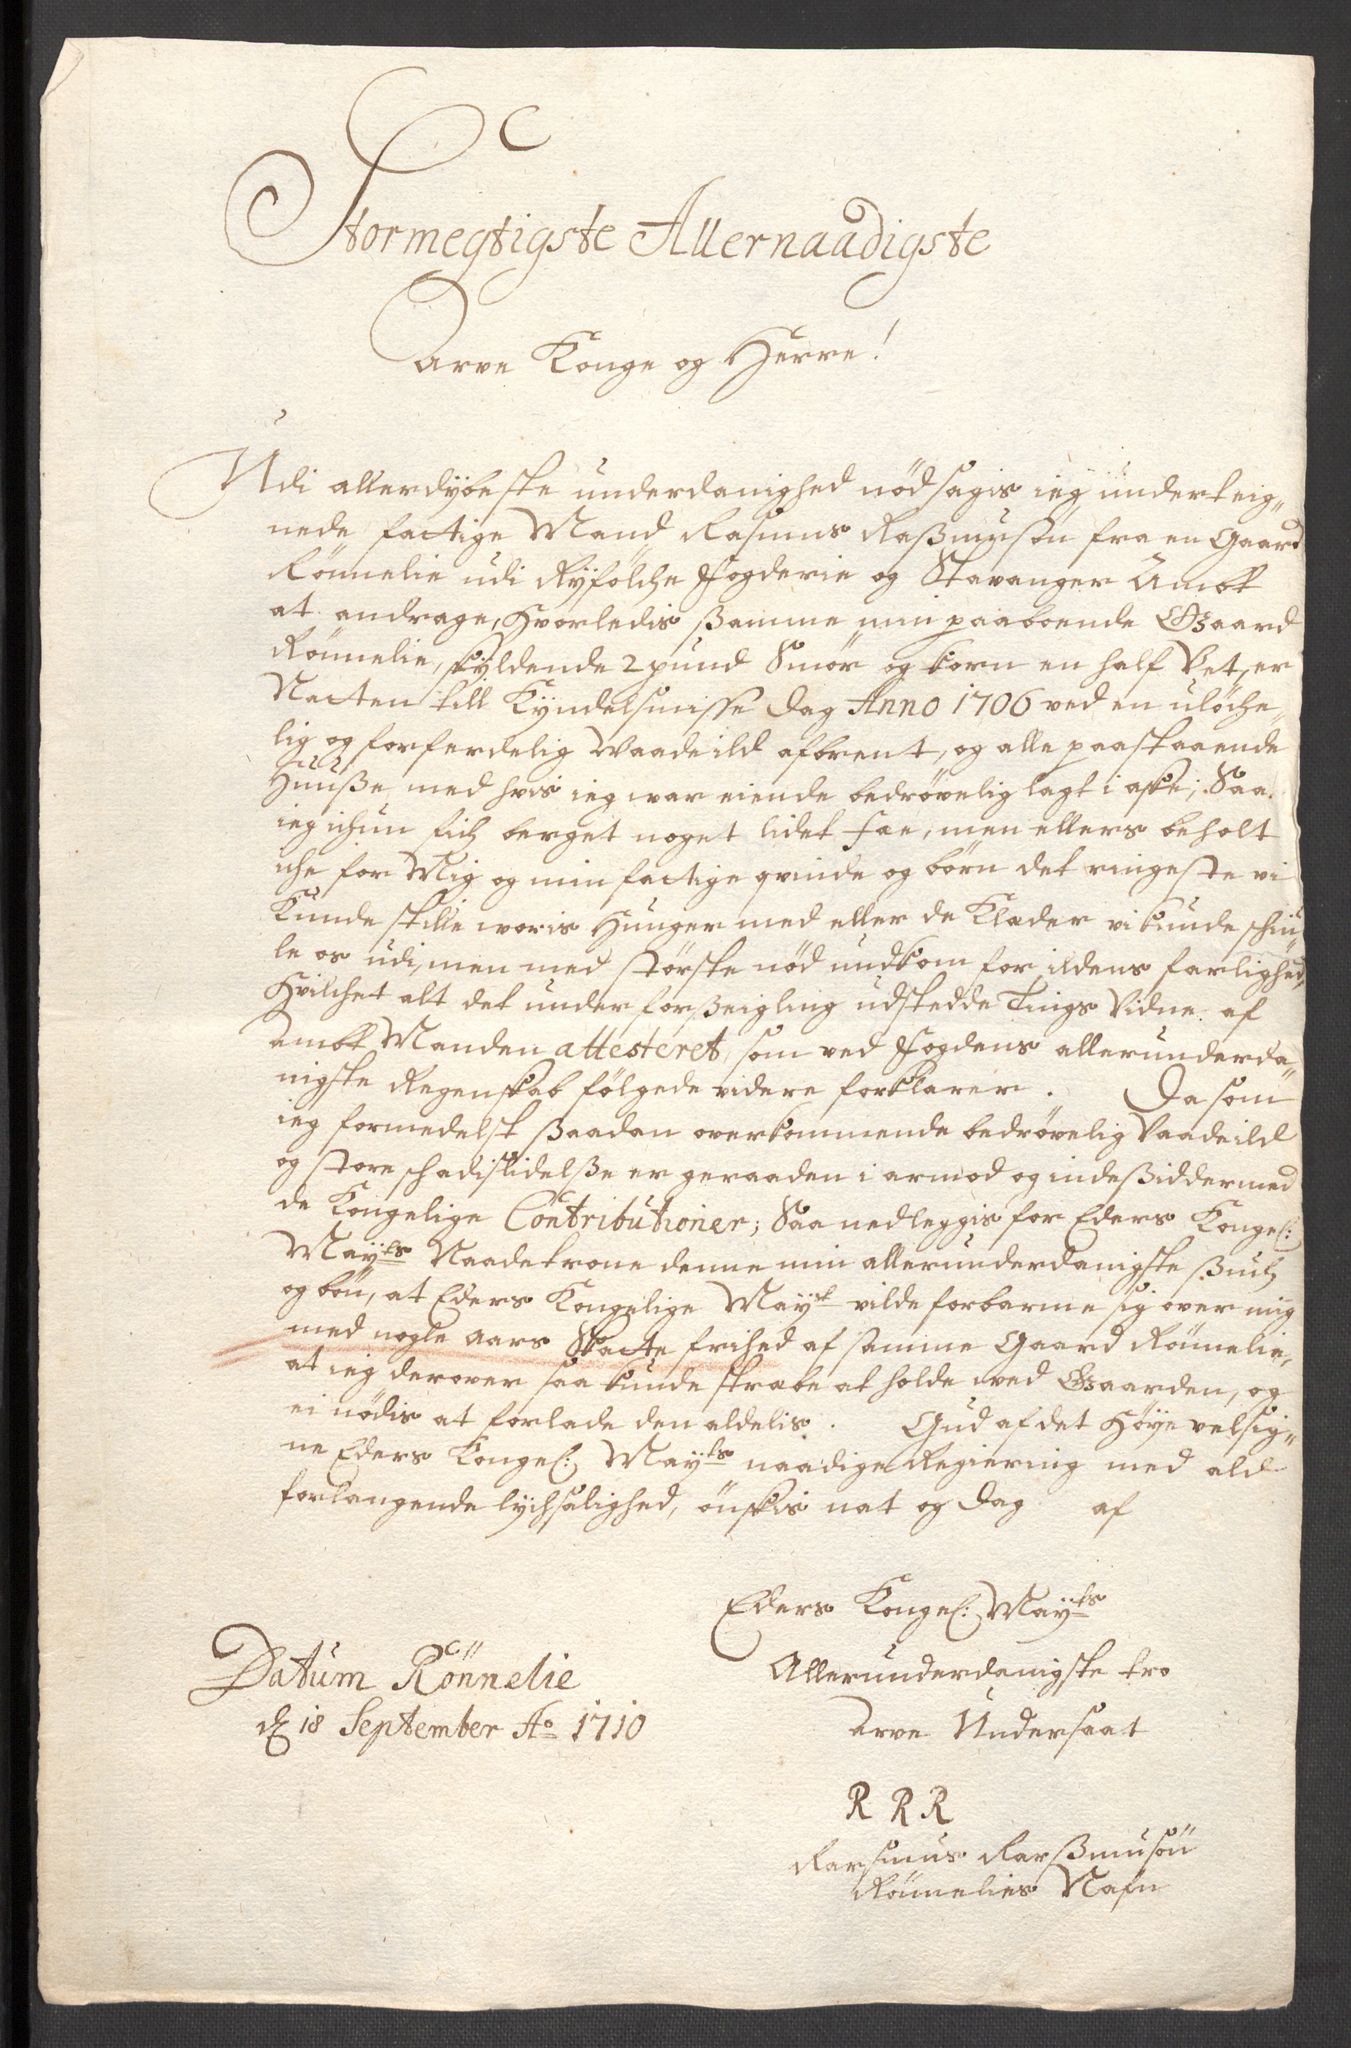 Stormegtigste Allernaadigste
Arve Konge og Herre!
Udi allerdybeste underdanighed nödsagis ieg underteig„
nede fattige Mand Rasmus Raßmusøn fra en Gaard
Rönnelie udi Ryfölche Fogderie og Stavanger Ambt
at andrage, hvorledis ßamme min paaboende Gaard
Rönnelie, skyldende 2 pund Smør og korn en half Vet, er
Natten till Kyndelsmisse Dag Anno 1706 ved en ulöche„
lig og forferdelig Waadeild afbrent, og alle paastaaende
Huuße med hvis ieg war eiende bedrøvelig lagt i aske; Saa
ieg ichun fich berget noget lidet fæe, men ellers beholt
iche for Mig og min fattige qvinde og börn det ringeste vi
Kunde stille woris Hunger med eller de Klæder vi kunde schiu„
le os udi, men med største nöd undkom for ildens farlighed,
Hvilchet alt det under forßeigling udstedde Tings Vidne af
Ambt Manden attesteret, som ved Fogdens allerunderda„
nigste Regenskab fölgede videre forklarer. Da som
ieg formedelst ßaadan overkommende bedrøvelig Vaadeild
og store schadislidelße er geraaden i armod og indeßidder med
de Kongelige Contributioner; Saa nedleggis for Eders Kongel:
Mayts Naadetrone denne min allerunderdanigste ßuch
og bön, at Eders Kongelige Mayt vilde forbarme sig over mig
med nogle aars Skatte frihed af samme Gaard Rönnelie,
at ieg derover saa kunde stræbe at holde ved Gaarden, og
ei nödis at forlade den aldelis. Gud af det Høye velsig„
ne Eders Kongel: Mayts naadige Regiering med ald
forlangende lychsalighed, önskis nat og Dag af
Eders Kongel: Mayts
Allerunderdanigste tro
arve Undersaat
Datum Rönnelie
d 18 September Ao 1710
R R R
Rasmus Raßmusön
Rönnelies Nafn